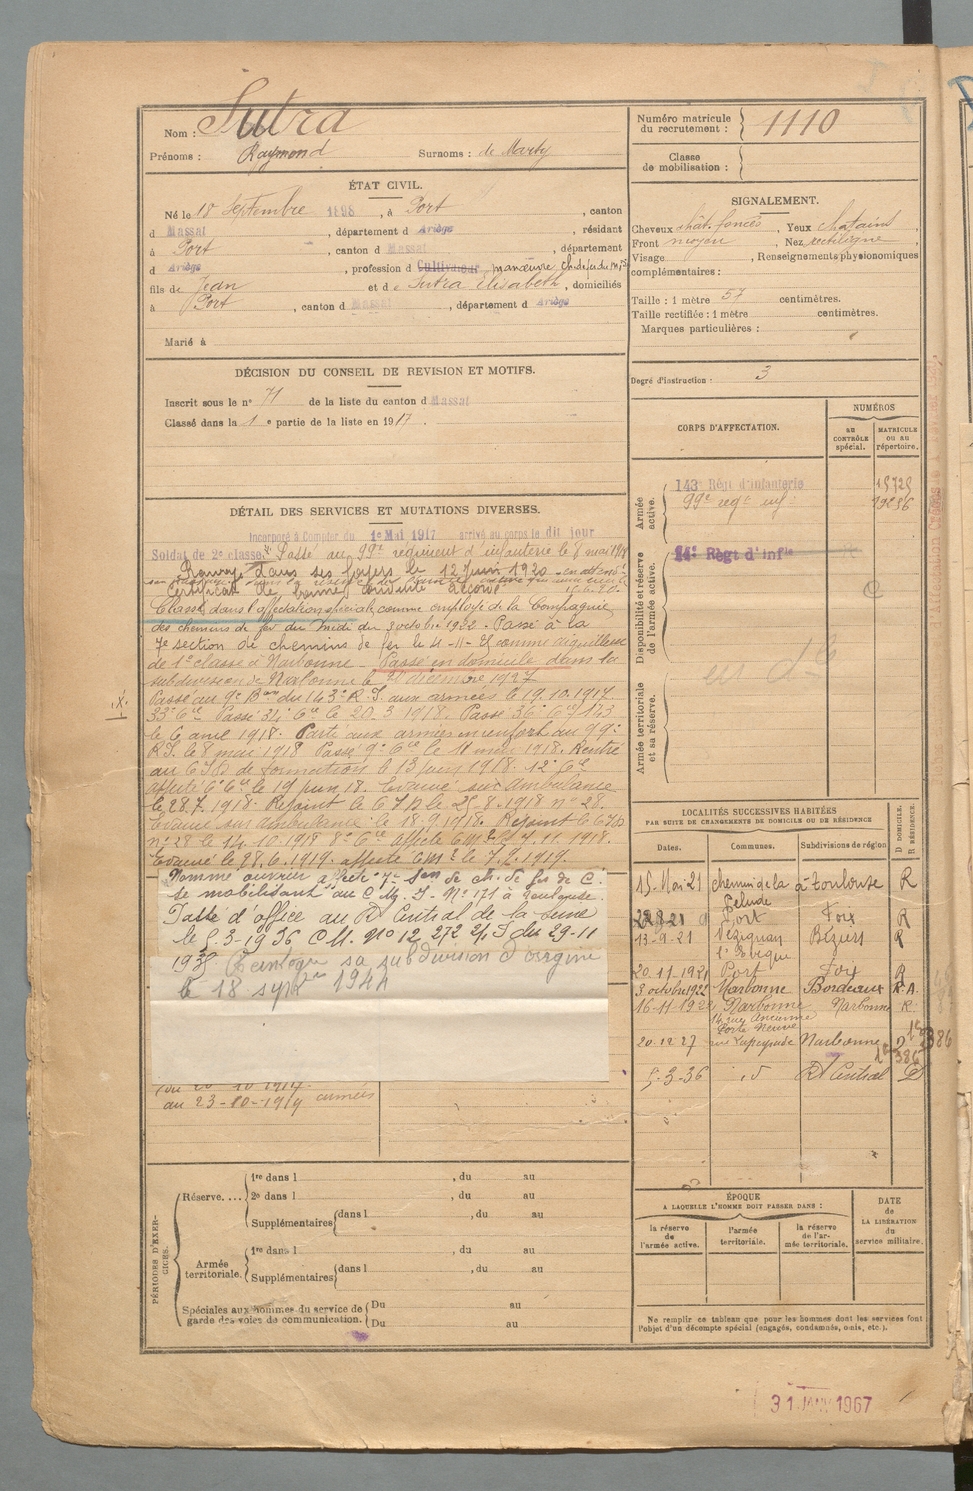 Nom : Sutra
Prénoms : Raymond Surnoms : de Marty
Numéro matricule du recrutement : 1110
Classe de mobilisation :
ÉTAT CIVIL.
Né le 18 Septembre 1898, à Port, canton
d Massat, département d Ariège, résidant
à Port, canton d Massat, département
d Ariège, profession d Cultivateur manœuvre ch. de fer du midi
fils de Jean et d e Sutra Elisabeth, domiciliés
à Port, canton d Massat, département d Ariège
Marié à
SIGNALEMENT.
Cheveux chât. foncés, Yeux chatains,
Front moyen, Nez rectiligne,
Visage , Renseignements physionomiques
complémentaires :
Taille : 1 mètre 57 centimètres.
Taille rectifiée : 1 mètre centimètres.
Marques particulières :
Degré d'instruction : 3
DÉCISION DU CONSEIL DE REVISION ET MOTIFS.
Inscrit sous le n° 71 de la liste du canton d Massat
Classé dans la 1 e partie de la liste en 1917.
CORPS D'AFFECTATION.
NUMÉROS
AU CONTRÔLE spécial.
MATRICULE ou au répertoire.
Armée active.
143e Régt d'infanterie
99e regt inf
Disponibilité et réserve de l'armée active.
14e Régt d'Infie
Armée territoriale et sa réserve.
DÉTAIL DES SERVICES ET MUTATIONS DIVERSES.
Incorporé à Compter du 1e Mai 1917 arrivé au corps le dit jour
Soldat de 2e classe. Passé au 99e regiment d'infanterie le 8 mai 1918
Renvoyé dans ses foyers le 12 Juin 1920
Certificat de bonne conduite accordé
Classé dans l'affectation spéciale comme employé de la Compagnie
des chemins de fer du Midi du 3 octobre 1922. Passé à la
7e section de chemins de fer le 4-11- comme aiguilleur
de 1e classe à Narbonne - Passé en domicile dans la
subdivision de Narbonne le 20 décembre 1927
Passé au 9e Bon du 143e R.I. aux armées le 19.10.1917
33e Cie Passé 34e Cie le 20.3.1918. Passé 36e Cie 143
le 6 avril 1918. Parti aux armées en renfort au 99e
R.I. le 8 mai 1918 Passé 9e Cie le 11 mai 1918. Rentré
au C.I.D de formation le 13 juin 1918. 12e Cie
affecté 6e Cie le 19 juin 18. Evacué sur Ambulance
le 28.7.1918. Rejoint le C.I.D le 25-8-1918 n° 28.
Evacué sur ambulance le 18.9.1918. Rejoint le C.I.D
n° 28 le 14.10.1918 8e Cie Affecté C M 2 le 7.11.1918.
Evacué le 28.6.1919. affecté C M 2 le 7.9.1919.
Nommé ouvrier affecté 7e Son de ch. de fer de C.
se mobilisant au C.M. I. N° 171 à Toulouse.
Passé d'office au Rt Central de la Seine
le 5.3-1936 C.M. N° 12 272 2/I du 29-11
1935. Réintègre sa subdivision d'origine
le 18 sept 1944
au 23-10-1919 armées
LOCALITÉS SUCCESSIVES HABITÉES
PAR SUITE DE CHANGEMENTS DE DOMICILE OU DE RÉSIDENCE
Dates. Communes. Subdivisions de région
D DOMICILE. R RÉSIDENCE.
15-Mai-21 chemin de la Pelude à Toulouse R
Port Foix R
13-9-21 Vézignan l'Evêque Béziers R
20.11.1921 Port Foix R
3 octobre 1922 Narbonne Bordeaux R.A.
16-11-1922 Narbonne Narbonne R.
14 rue Ancienne Porte Neuve
20.12 27 rue Lapeyrade Narbonne D
5-3-36 id Rt Central D
PÉRIODES D'EXERCICES.
Réserve....
1re dans l , du au
2e dans l , du au
Supplémentaires dans l , du au
Armée territoriale.
1re dans l , du au
Supplémentaires dans l , du au
Spéciales aux hommes du service de garde des voies de communication.
Du au
Du au
ÉPOQUE
A LAQUELLE L'HOMME DOIT PASSER DANS :
la réserve de l'armée active.
l'armée territoriale.
la réserve de l'armée territoriale.
DATE de LA LIBÉRATION du service militaire.
Ne remplir ce tableau que pour les hommes dont les services font l'objet d'un décompte spécial (engagés, condamnés, omis, etc.).
31 JANV 1967